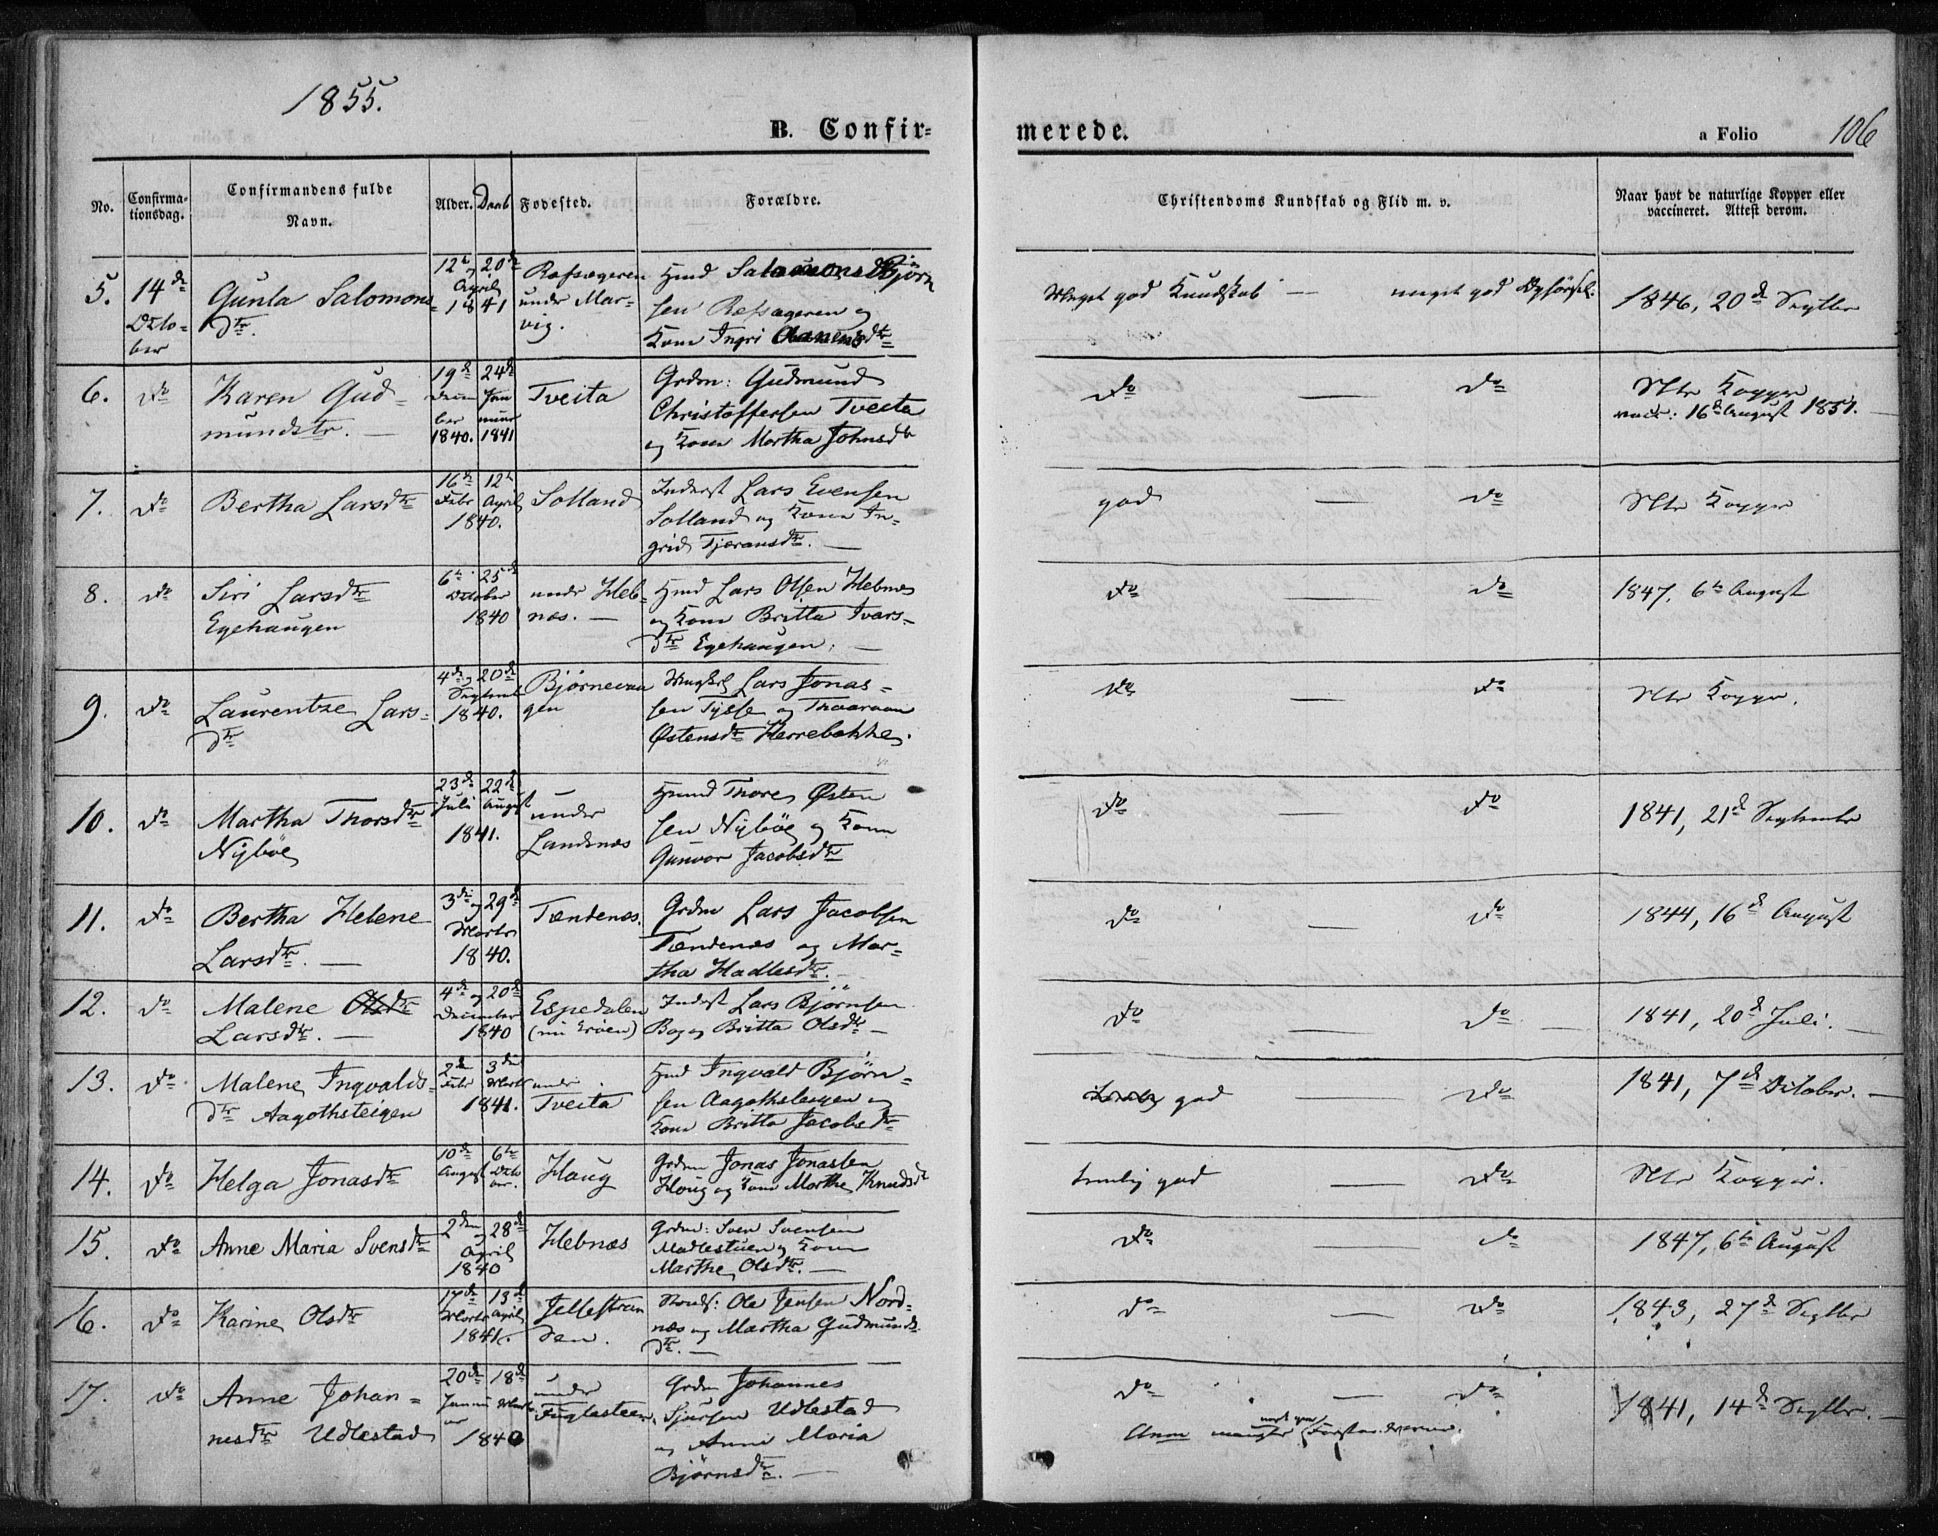 1855.
B. Confir=
merede.
a Folio 106
No. Confirma-tionsdag. Confirmandens fulde Navn. Alder. Daab Fødested. Forældre. Christendoms Kundskab og Flid m. v. Naar havt de naturlige Kopper eller vaccineret. Attest derom.
5. 14de October
Gunla Salomons-
dtr.
12te og 20de April 1841
under Mar-
vig.
Hmd Salomonsd Bjørn
sen Refsageren og
Kone Ingri
Meget god Kundskab — meget god Opførsel.
1846, 20de Septbr
6. do
Karen Gud-
mundsdtr. —
19de December 1840. 24de Januar 1841
Tveita
Grdm: Gudmund
Christoffersen Tveita
og Kone Martha Johnsdtr
do — do
Ntr Kopper
vacc: 16de August 1851. —
7. do
Bertha Larsdtr
16de Febr 12te April 1840.
Solland
Inderst Lars Evensen
Solland og Kone In-
grid Tjeransdtr. —
god — do
Ntr Kopper
8. do
Siri Larsdtr
Egehaugen
6te 25de October 1840
under Heb-
næs. —
Hmd Lars Olsen Hebnæs
og Kone Britta Ivars-
dtr Egehaugen. —
do — do
1847, 6te August
9. do
Laurentze Lars-
dtr
4de og 20de Septembr 1840.
Bjørnevaa
gen
Ungkl Lars Jonas-
sen Tysse og
Østensdtr Herrebakke.
do — do
Ntr Kopper.
10. do
Martha Thorsdtr
Nybøe
23de Juli 22de August 1841.
under
Landsnæs
Hmd Thore Østen
sen Nybøe og Kone
Gunvor Jacobsdtr
do — do
1841, 21de September
11. do
Bertha Helene
Larsdtr. —
3die og 29de Marts 1840.
Tændenæs.
Grdm Lars Jacobsen
Tændenæs og Mar-
tha Hadlesdtr. —
do — do
1844, 16de August
12. do
Malene Olsdtr
Larsdtr. —
4de og 20de December 1840
Espedalen
(nu Erøen)
Inderst Lars Bjørnsen
Bog og Britta Olsdtr —
do — do —
1841, 20de Juli. —
13. do
Malene Ingvalds-
dtr Aagothsteigen
2den Febr 3die Marts 1841.
under
Tveita
Hmd Ingvald Bjørn-
sen Aagothsteigen og
Kone Britta Jacobsdtr
temlig god — do
1841, 7de October. —
14. do
Helga Jonasdtr
10de August 6te October.
Haug
Grdm Jonas Jonassen
Haug og Kone Marthe Knudsdtr
temlig god — do
Ntr Kopper.
15. do
Anne Maria Svensdtr
2den og 28de April 1840
Hebnæs
Grdm: Sven Svensen
Madlestuen og Kone
Marthe Olsdtr. —
do — do
1847, 6te August
16. do
Karine Olsdtr
17de Marts 13de April 1841.
Jelsestran
den.
Ole Jensen Nord-
næs og Martha Gudmunds
dtr. —
do — do
1843, 27de Septbr
17. do
Anne Johan-
nesdtr Udlestad
20de Januar 18de Marts 1840
under
Fuglesteen.
Grdm Johannes
Sjursen Udlestad
og Anne Maria
Bjørnsdtr. —
do — do
Anm mangler
1841, 14de Septbr. —